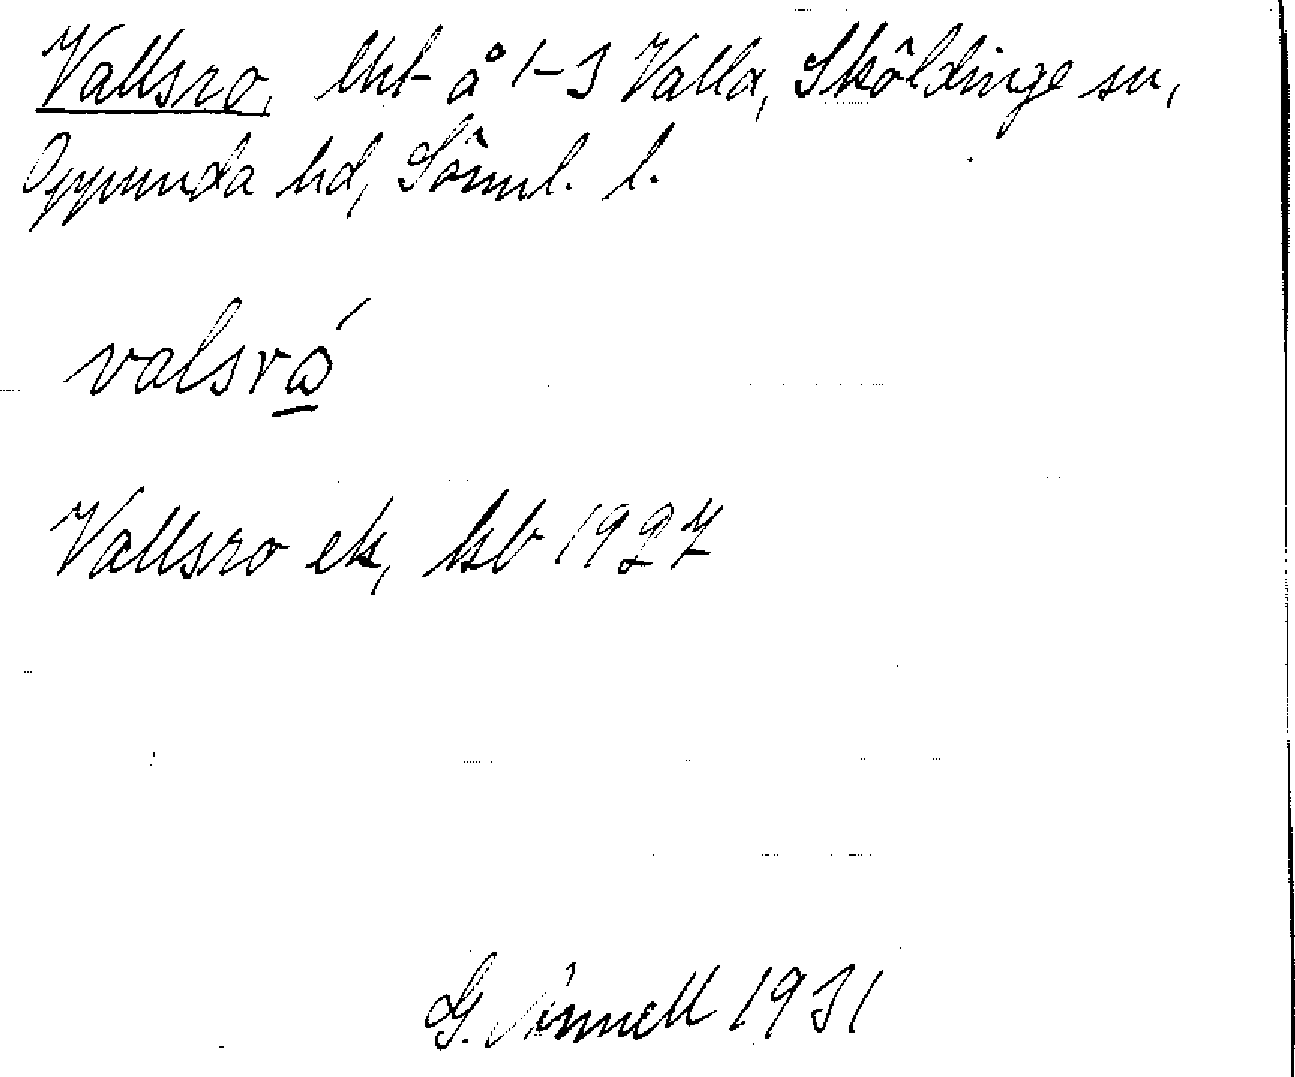 Vallsro, lht å 1-3 Valla, Sköldinge sn,
Oppunda hd, Sörml. l.
valsrό̱
Vallsro ek, kb 1927
G. Linnell 1931